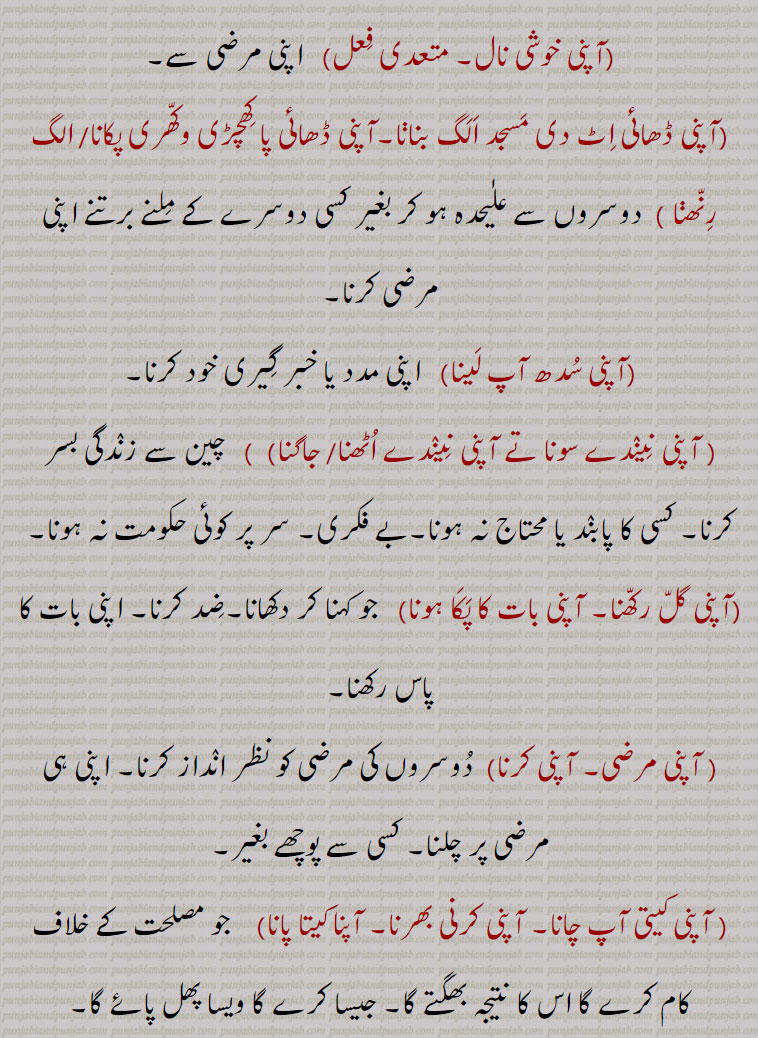 (آپنی خوشی نال۔ متعدی فِعل) اپنی مرضی سے۔
(آپنی ڈھائی اِٹ دی مَسجد اَلَگ بناݨا۔آپنی ڈھائی پا کِھچڑی وکھّری پکانا/ الگ
رِنّھݨا ) دوسروں سے علیٰحدہ ہو کر بغیر کسی دوسرے کے مِلنے برتنے اپنی
مرضی کرنا۔
(آپنی سُدھ آپ لَینا) اپنی مدد یا خبر گِیری خود کرنا۔
( آپنی نِین٘دے سونا تے آپنی نِین٘دے اُٹھنا/ جاگنا) ) چین سے زن٘دگی بسر
کرنا۔ کسی کا پابن٘د یا محتاج نہ ہونا۔بے فکری۔ سر پر کوئی حکومت نہ ہونا۔
(آپنی گلّ رکھّنا۔ آپنی بات کا پَکّا ہونا) جو کہنا کر دکھانا۔ضِد کرنا۔ اپنی بات کا
پاس رکھنا۔
( آپنی مرضی۔ آپنی کرنا) دُوسروں کی مرضی کو نظر ان٘داز کرنا۔ اپنی ہی
مرضی پر چلنا۔ کسی سے پوچھے بغیر۔
( آپنی کیتی آپ چانا۔ آپنی کرنی بھرنا۔ آپنا کیتا پانا) جو مصلحت کے خلاف
کام کرے گا اس کا نتیجہ بھگتے گا۔ جیسا کرے گا ویسا پھل پائے گا۔